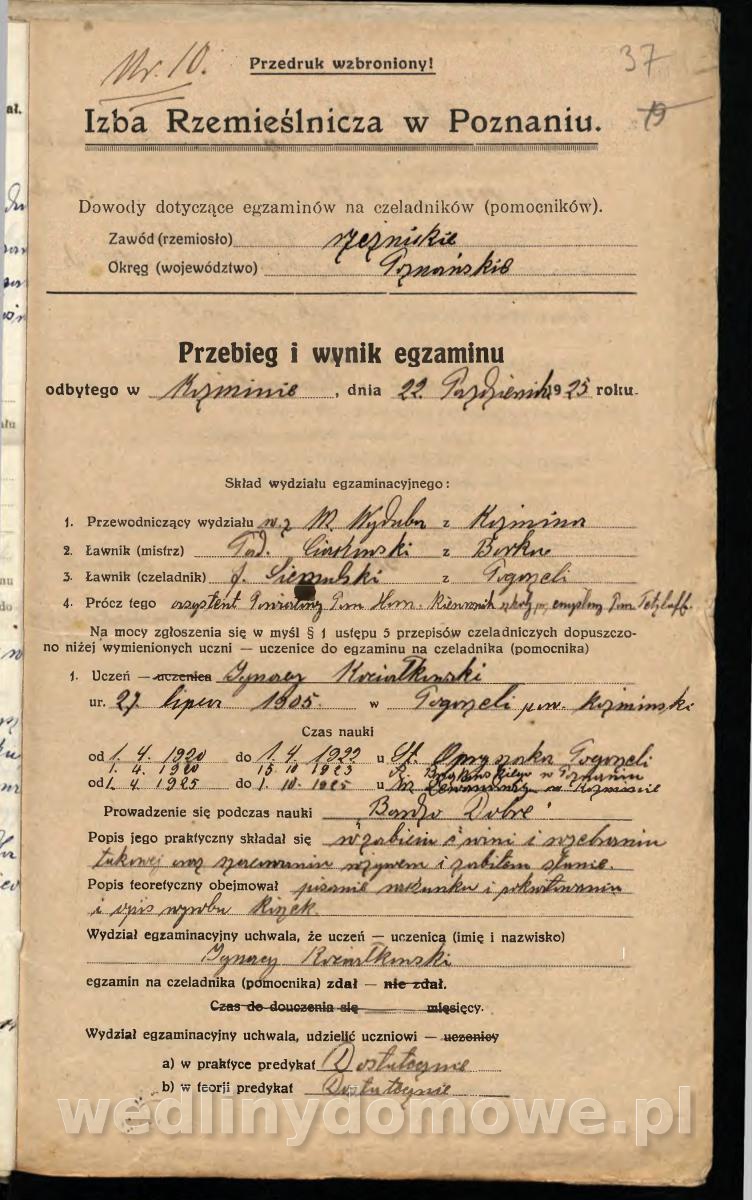 Nr. 10.
Przedruk wzbroniony!
37
19
Izba Rzemieślnicza w Poznaniu.
Dowody dotyczące egzaminów na czeladników (pomocników).
Zawód (rzemiosło) rzeźnickie
Okręg (województwo) Poznańskie
Przebieg i wynik egzaminu
odbytego w Koźminie, dnia 22. Październik 1925 roku.
Skład wydziału egzaminacyjnego:
1. Przewodniczący wydziału w.z W. Wyduba z Koźmina
2. Ławnik (mistrz) Tad. z Borku
3. Ławnik (czeladnik) z Pogorzeli
4. Prócz tego asystent Powiatowy Pan kierownik szkoły Pan
Na mocy zgłoszenia się w myśl § 1 ustępu 5 przepisów czeladniczych dopuszczo-
no niżej wymienionych uczni — uczenice do egzaminu na czeladnika (pomocnika)
1. Uczeń — uczenica Ignacy Koziałkowski
ur. 27. lipca 1905. w Pogorzeli pow. Koźmiński
Czas nauki
od 1. 4. 1920 do 1. 4. 1922 u St. Opryszaka Pogorzeli
1. 4. 1920 15. 10 1923 w Poznaniu
od 1. 4. 1925 do 1. 10. 1925 u w Koźminie
Prowadzenie się podczas nauki Bardzo Dobre
Popis jego praktyczny składał się w zabiciu świni i rozebraniu
takowej oraz szacowaniu w żywem i zabitem stanie.
Popis teoretyczny obejmował pisanie rachunku i pokwitowania
i opis wyrobu kiszek.
Wydział egzaminacyjny uchwala, że uczeń — uczenica (imię i nazwisko)
Ignacy Koziałkowski
egzamin na czeladnika (pomocnika) zdał — nie zdał.
Czas do douczenia się miesięcy.
Wydział egzaminacyjny uchwala, udzielić uczniowi — uczenicy
a) w praktyce predykat Dostatecznie
b) w teorji predykat Dostatecznie
wedlinydomowe.pl